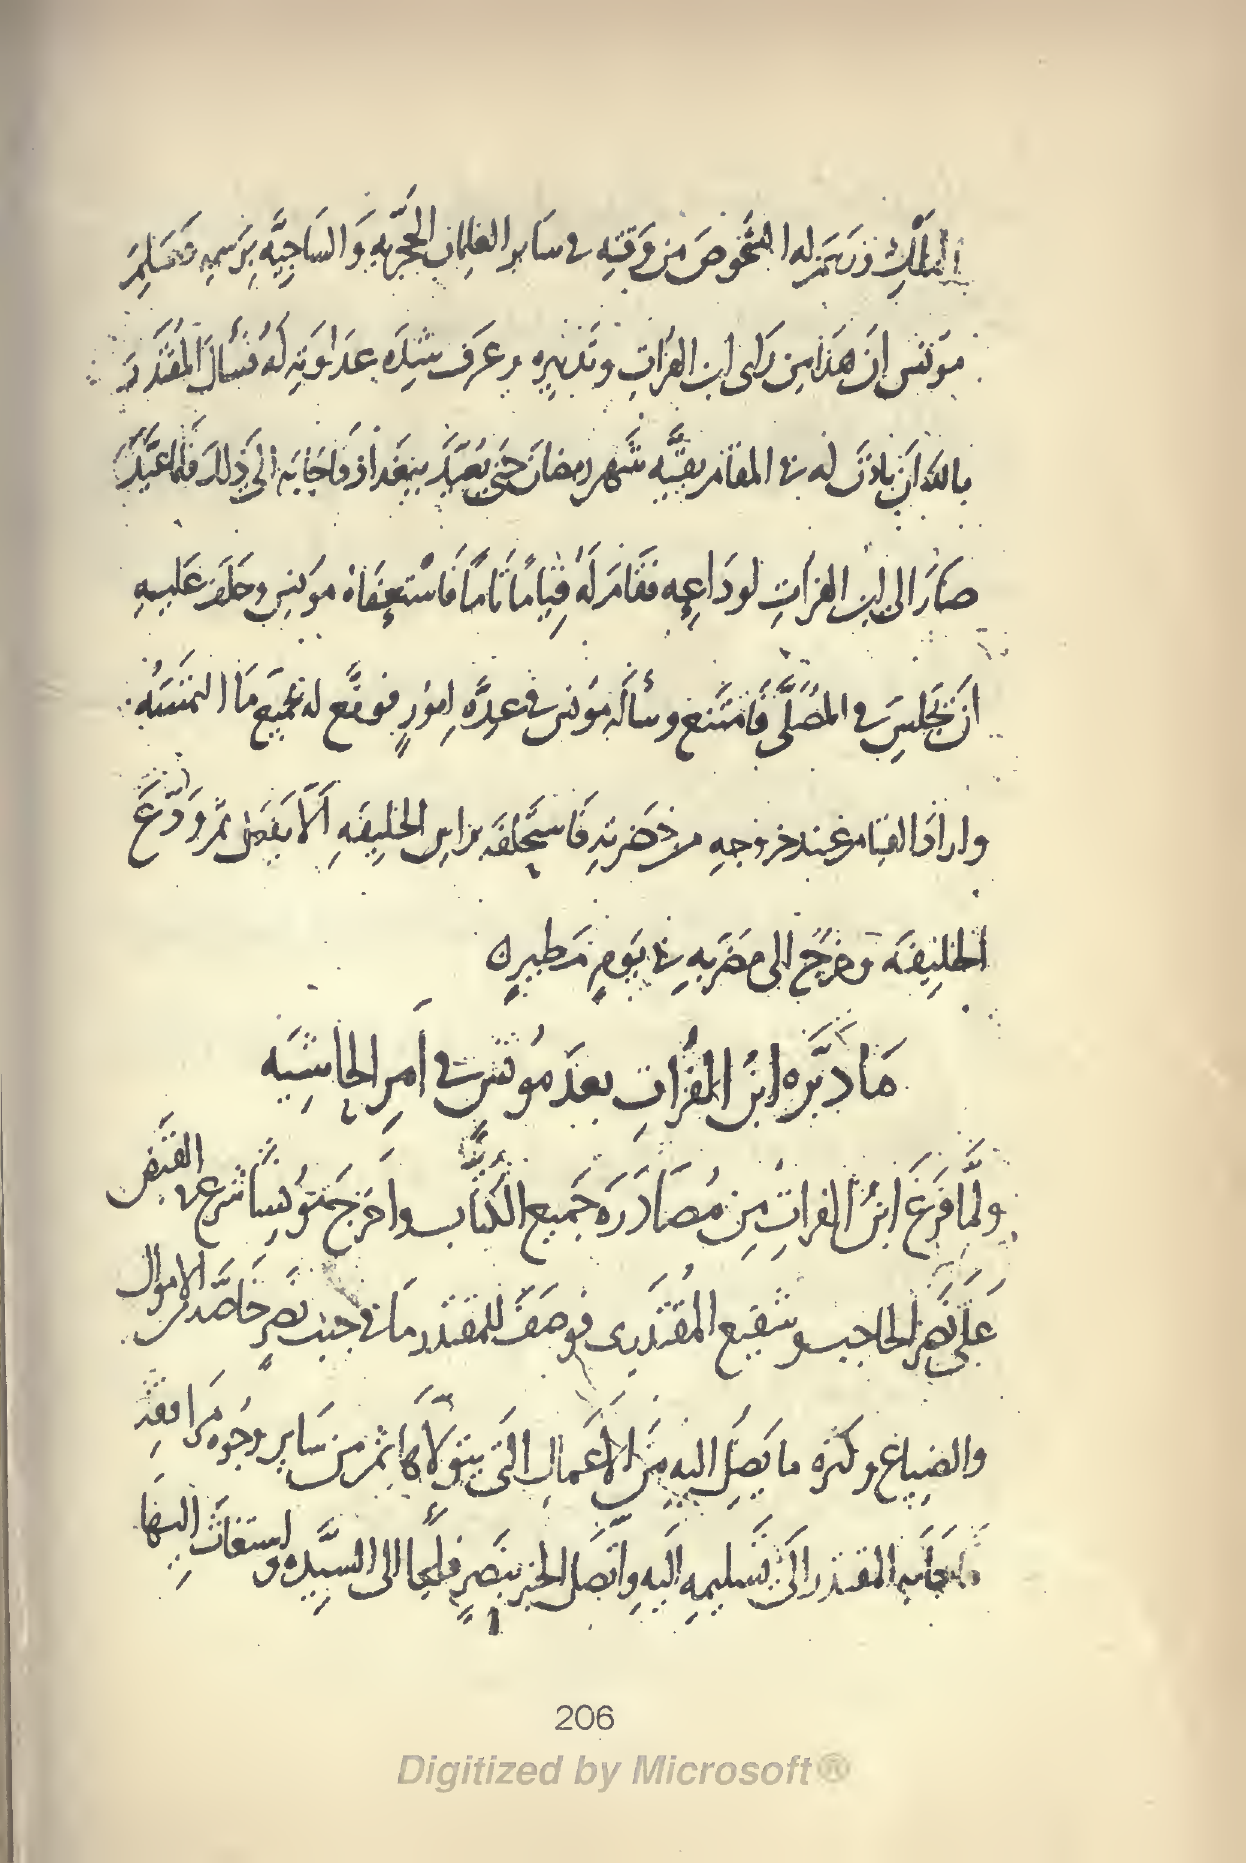 الملك ورسم له الشخوص من وقته في ساير الغلمان الحجريه والساجيه برسمه فعلم
مونس ان هذا من راى ابن الفرات وتدبيره وعرف شده عداوته له فسأل المقتدر
بالله ان ياذن له في المقام بقيه شهر رمضان حتى يعيد ببغداذ فاجابه الى ذلك فلما عيد
صار الى ابن الفرات لوداعه فقام له قياما تاما فاستعفاه مونس وحلف عليه
ان يجلس في المصلى فامتنع وسأله مونس في عده امور فوقع له بجميع ما التمسه
واراد القيام عند خروجه من حضرته فاستحلفه براس الخليفه ألا يفعل ثم ودع
الخليفه وخرج الى مضربه في يوم مطير
ما دبره ابن الفرات بعد مونس في امر الحاشيه
ولما فرغ ابن الفرات من مصادره جميع الكتاب واخرج مونسا شرع في القبض
على نصر الحاجب وشفيع المقتدرى فوصف للمقتدر ما في جنب نصر خاصه من الاموال
والضياع وكثره ما يصل اليه من الاعمال التى يتولاها ثم من ساير وجوه مرافقه
فاجابه المقتدر الى تسليمه اليه واتصل الخبر بنصر فلجأ الى السيده واستغاث اليها
206
Digitized by Microsoft®